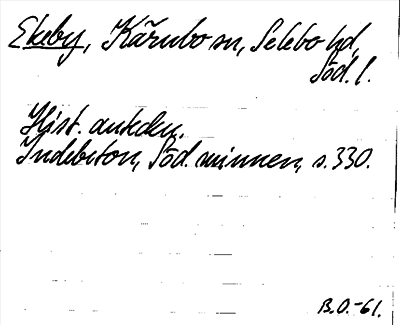 Ekeby, Kärnbo sn, Selebo hd,
Söd. l.
Hist. anteckn.
Indebetou, Söd. minnen, s. 330.
B.O.-61.